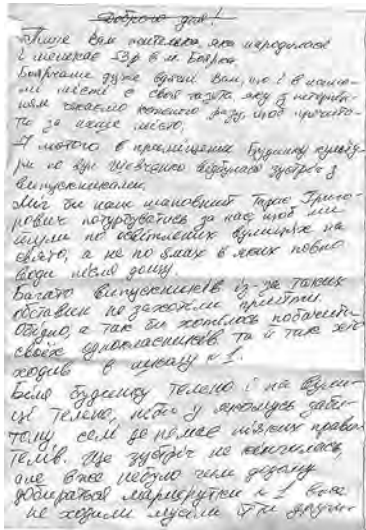 Доброго дня!
Пише Вам жителька, яка народилася
і мешкає 53р в м. Боярка.
Боярчани дуже вдячні Вам, що і в нашо-
му місті є своя газета яку з нетерпін-
ням чекаємо кожного разу, щоб прочита-
ти за наше місто.
7 лютого в приміщенні будинку культу-
ри по вул Шевченко відбулася зустріч з
випускниками.
Міг би наш шановний Тарас Григо-
рович потурбуватись за нас щоб ми
йшли по освітлених вулицях на
свято, а не по ямах в яких повно
води після дощу.
Багато випускників із-за таких
обставин не захотіли прийти.
Обідно, а так би хотілось побачити
своїх однокласників та й так хто
ходив в школу №1.
Біля будинку темно і на вули-
ці темно, ніби у якомусь заби-
тому селі де немає ніяких прави-
телів. Ще зустріч не кінчилась,
але вже небуло чим додому
добиратися маршрутки №1 вже
не ходили мусіли йти